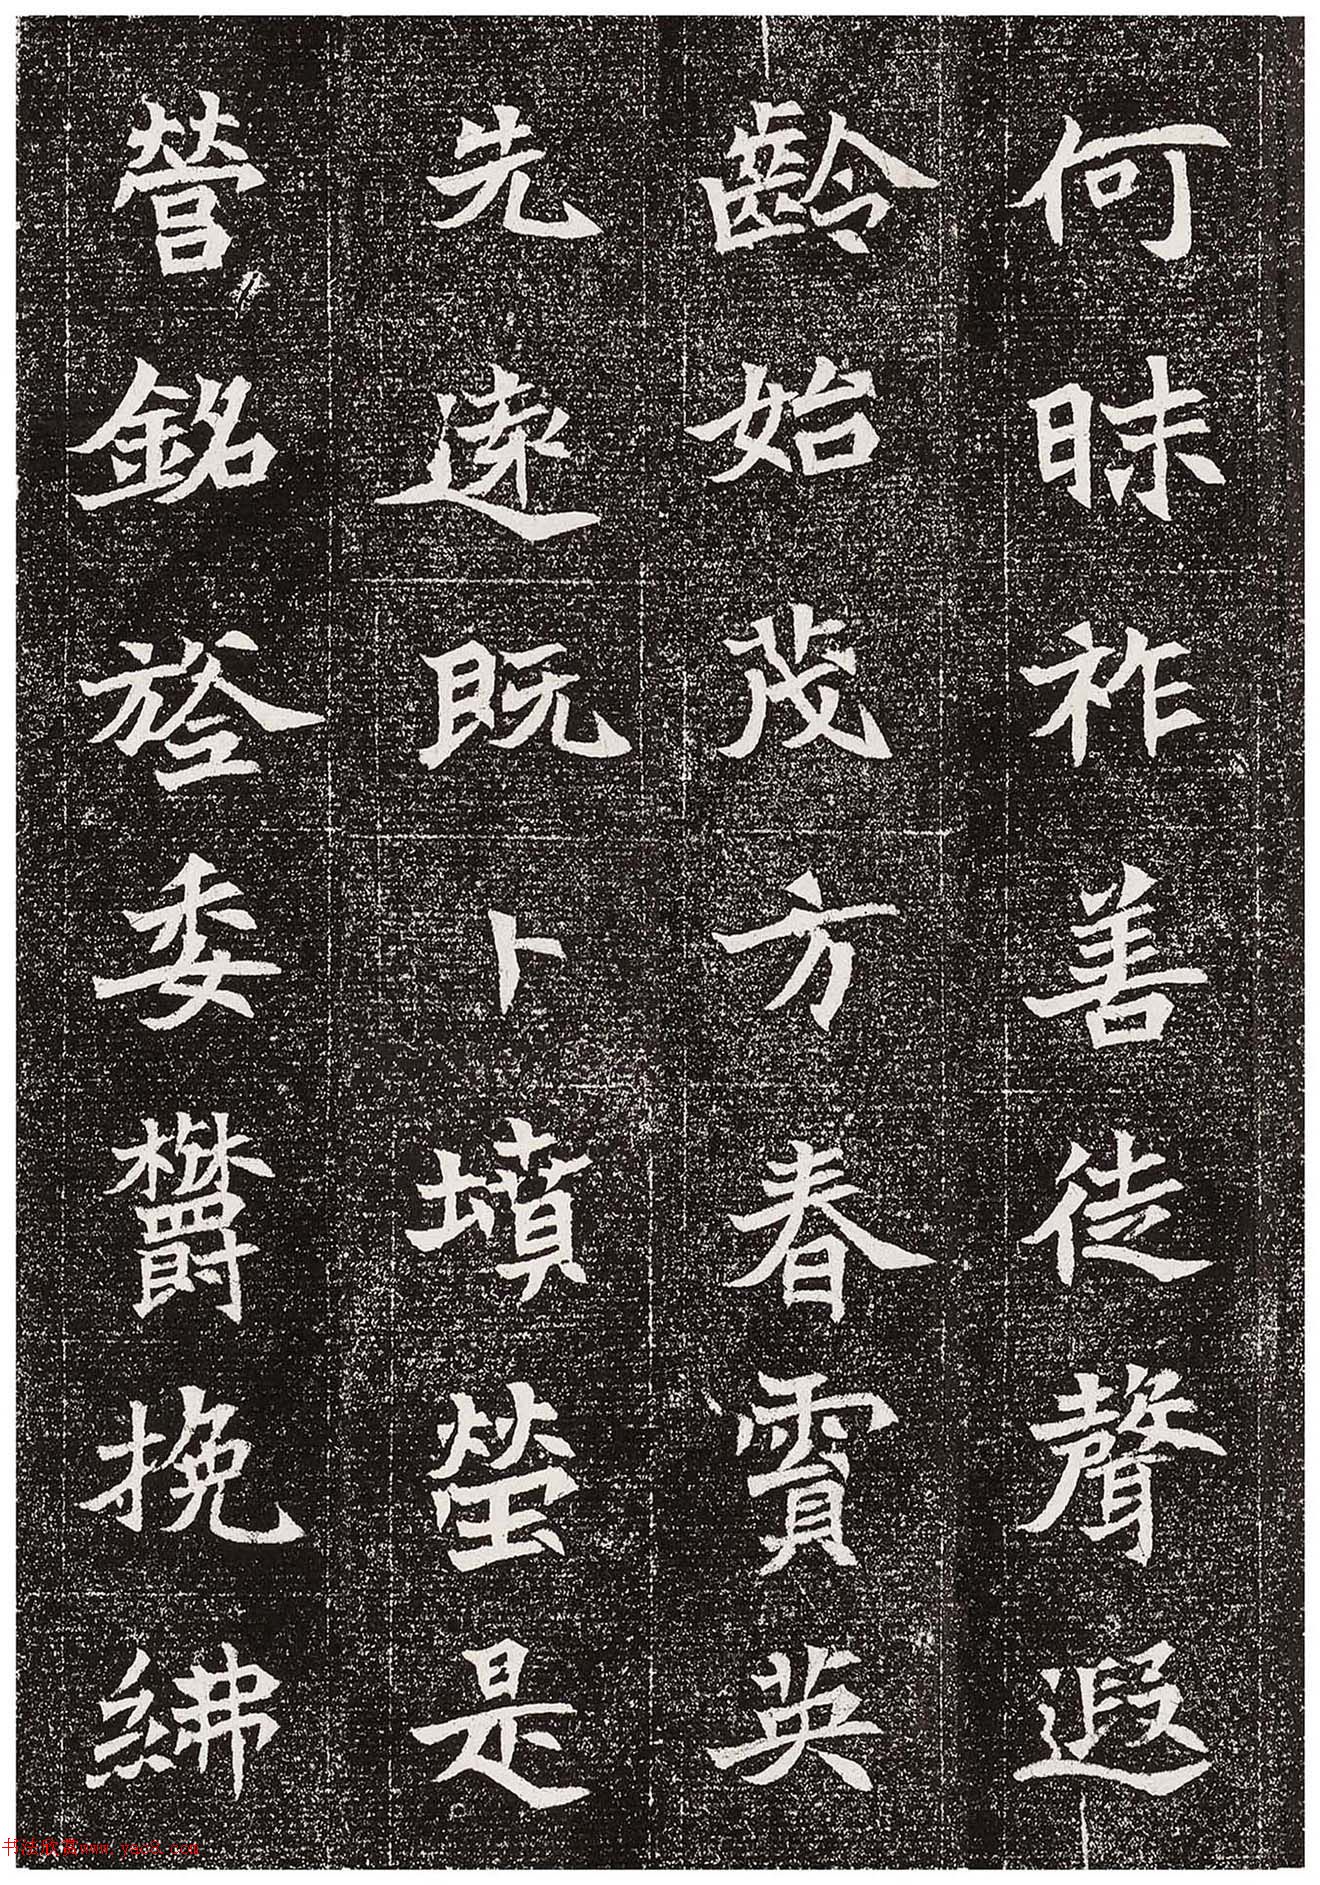 何昧祚善徒聲遐
齡始茂方春賈英
先遠既卜墳塋是
營銘旌委欝挽紼
书法欣赏www.yac8.com